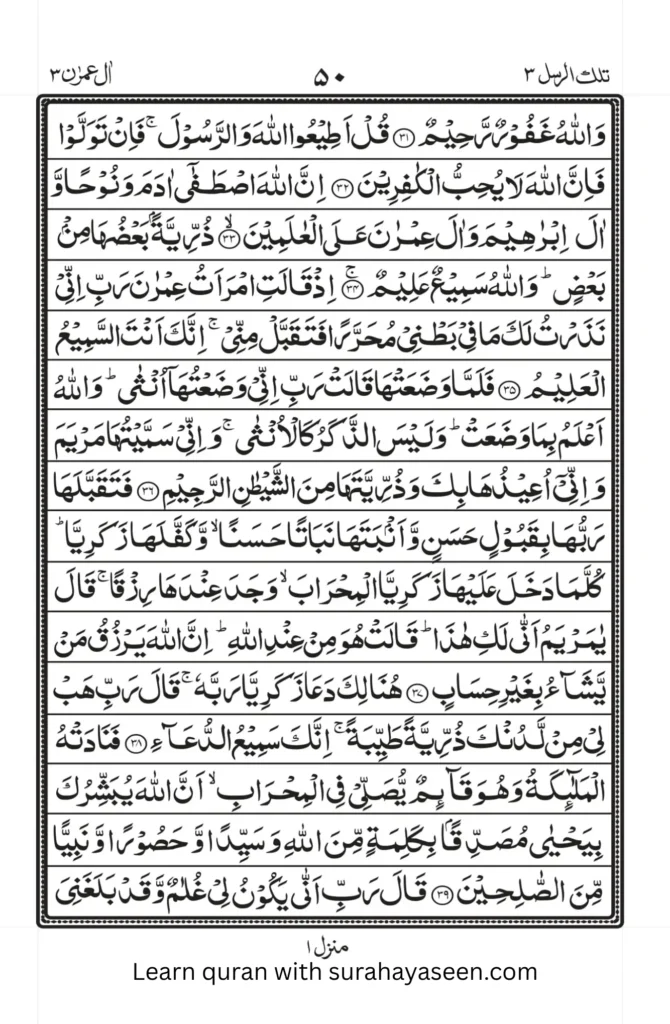 تلك الرسل ٣
٥٠
اٰل عمرٰن ٣
وَاللّٰهُ غَفُوْرٌ رَّحِيْمٌ ﴿٣١﴾ قُلْ اَطِيْعُوا اللّٰهَ وَالرَّسُوْلَ ۚ فَاِنْ تَوَلَّوْا
فَاِنَّ اللّٰهَ لَا يُحِبُّ الْكٰفِرِيْنَ ﴿٣٢﴾ اِنَّ اللّٰهَ اصْطَفٰٓى اٰدَمَ وَنُوْحًا وَّ
اٰلَ اِبْرٰهِيْمَ وَاٰلَ عِمْرٰنَ عَلَى الْعٰلَمِيْنَ ۙ﴿٣٣﴾ ذُرِّيَّةًۢ بَعْضُهَا مِنْۢ
بَعْضٍ ؕ وَاللّٰهُ سَمِيْعٌ عَلِيْمٌ ۚ﴿٣٤﴾ اِذْ قَالَتِ امْرَاَتُ عِمْرٰنَ رَبِّ اِنِّيْ
نَذَرْتُ لَكَ مَا فِيْ بَطْنِيْ مُحَرَّرًا فَتَقَبَّلْ مِنِّيْ ۚ اِنَّكَ اَنْتَ السَّمِيْعُ
الْعَلِيْمُ ﴿٣٥﴾ فَلَمَّا وَضَعَتْهَا قَالَتْ رَبِّ اِنِّيْ وَضَعْتُهَاۤ اُنْثٰى ؕ وَاللّٰهُ
اَعْلَمُ بِمَا وَضَعَتْ ؕ وَلَيْسَ الذَّكَرُ كَالْاُنْثٰى ۚ وَاِنِّيْ سَمَّيْتُهَا مَرْيَمَ
وَاِنِّيْۤ اُعِيْذُهَا بِكَ وَذُرِّيَّتَهَا مِنَ الشَّيْطٰنِ الرَّجِيْمِ ﴿٣٦﴾ فَتَقَبَّلَهَا
رَبُّهَا بِقَبُوْلٍ حَسَنٍ وَّاَنْۢبَتَهَا نَبَاتًا حَسَنًا ۙ وَّكَفَّلَهَا زَكَرِيَّا ؕ
كُلَّمَا دَخَلَ عَلَيْهَا زَكَرِيَّا الْمِحْرَابَ ۙ وَجَدَ عِنْدَهَا رِزْقًا ۚ قَالَ
يٰمَرْيَمُ اَنّٰى لَكِ هٰذَا ؕ قَالَتْ هُوَ مِنْ عِنْدِ اللّٰهِ ؕ اِنَّ اللّٰهَ يَرْزُقُ مَنْ
يَّشَآءُ بِغَيْرِ حِسَابٍ ﴿٣٧﴾ هُنَالِكَ دَعَا زَكَرِيَّا رَبَّهٗ ۚ قَالَ رَبِّ هَبْ
لِيْ مِنْ لَّدُنْكَ ذُرِّيَّةً طَيِّبَةً ۚ اِنَّكَ سَمِيْعُ الدُّعَآءِ ﴿٣٨﴾ فَنَادَتْهُ
الْمَلٰٓئِكَةُ وَهُوَ قَآئِمٌ يُّصَلِّيْ فِي الْمِحْرَابِ ۙ اَنَّ اللّٰهَ يُبَشِّرُكَ
بِيَحْيٰى مُصَدِّقًۢا بِكَلِمَةٍ مِّنَ اللّٰهِ وَسَيِّدًا وَّحَصُوْرًا وَّنَبِيًّا
مِّنَ الصّٰلِحِيْنَ ﴿٣٩﴾ قَالَ رَبِّ اَنّٰى يَكُوْنُ لِيْ غُلٰمٌ وَّقَدْ بَلَغَنِيَ
منزل ١
Learn quran with surahayaseen.com